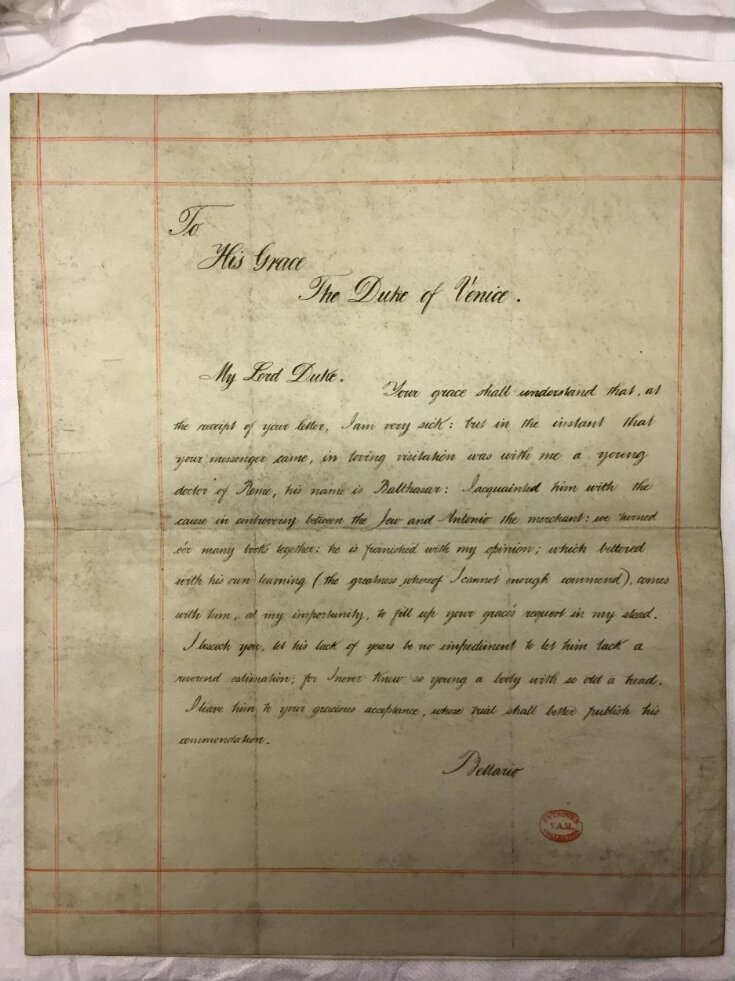 To
His Grace
The Duke of Venice.
My Lord Duke.
Your grace shall understand that, at
the receipt of your letter, I am very sick: but in the instant that
your messenger came, in loving visitation was with me a young
doctor of Rome, his name is Balthasar: I acquainted him with the
cause in controversy between the Jew and Antonio the merchant: we turned
o'er many books together: he is furnished with my opinion; which bettered
with his own learning (the greatness whereof I cannot enough commend), comes
with him, at my importunity, to fill up your grace's request in my stead.
I beseech you, let his lack of years be no impediment to let him lack a
reverend estimation; for I never knew so young a body with so old a head.
I leave him to your gracious acceptance, whose trial shall better publish his
commendation.
Bellario
ENTHOVEN
V.A.M.
COLLECTION